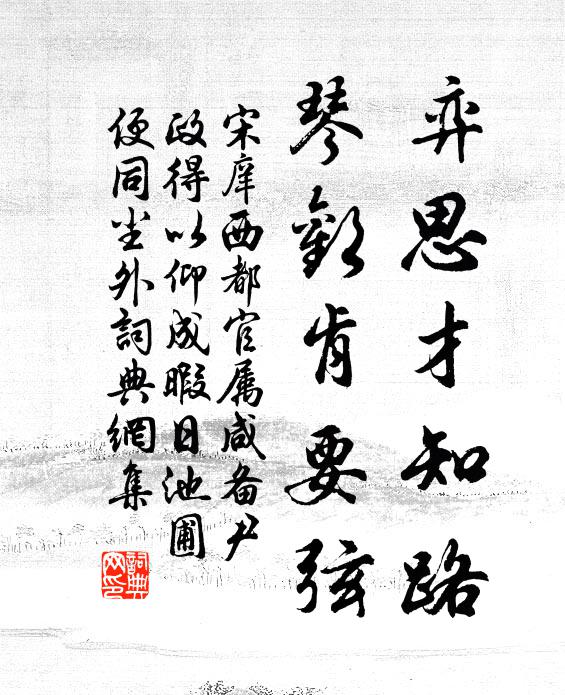 弈思才知路
琴歡肯要弦
宋庠西都官属咸备尹
政得以仰成暇日池圃
便同尘外詞典網集
詞典
网印